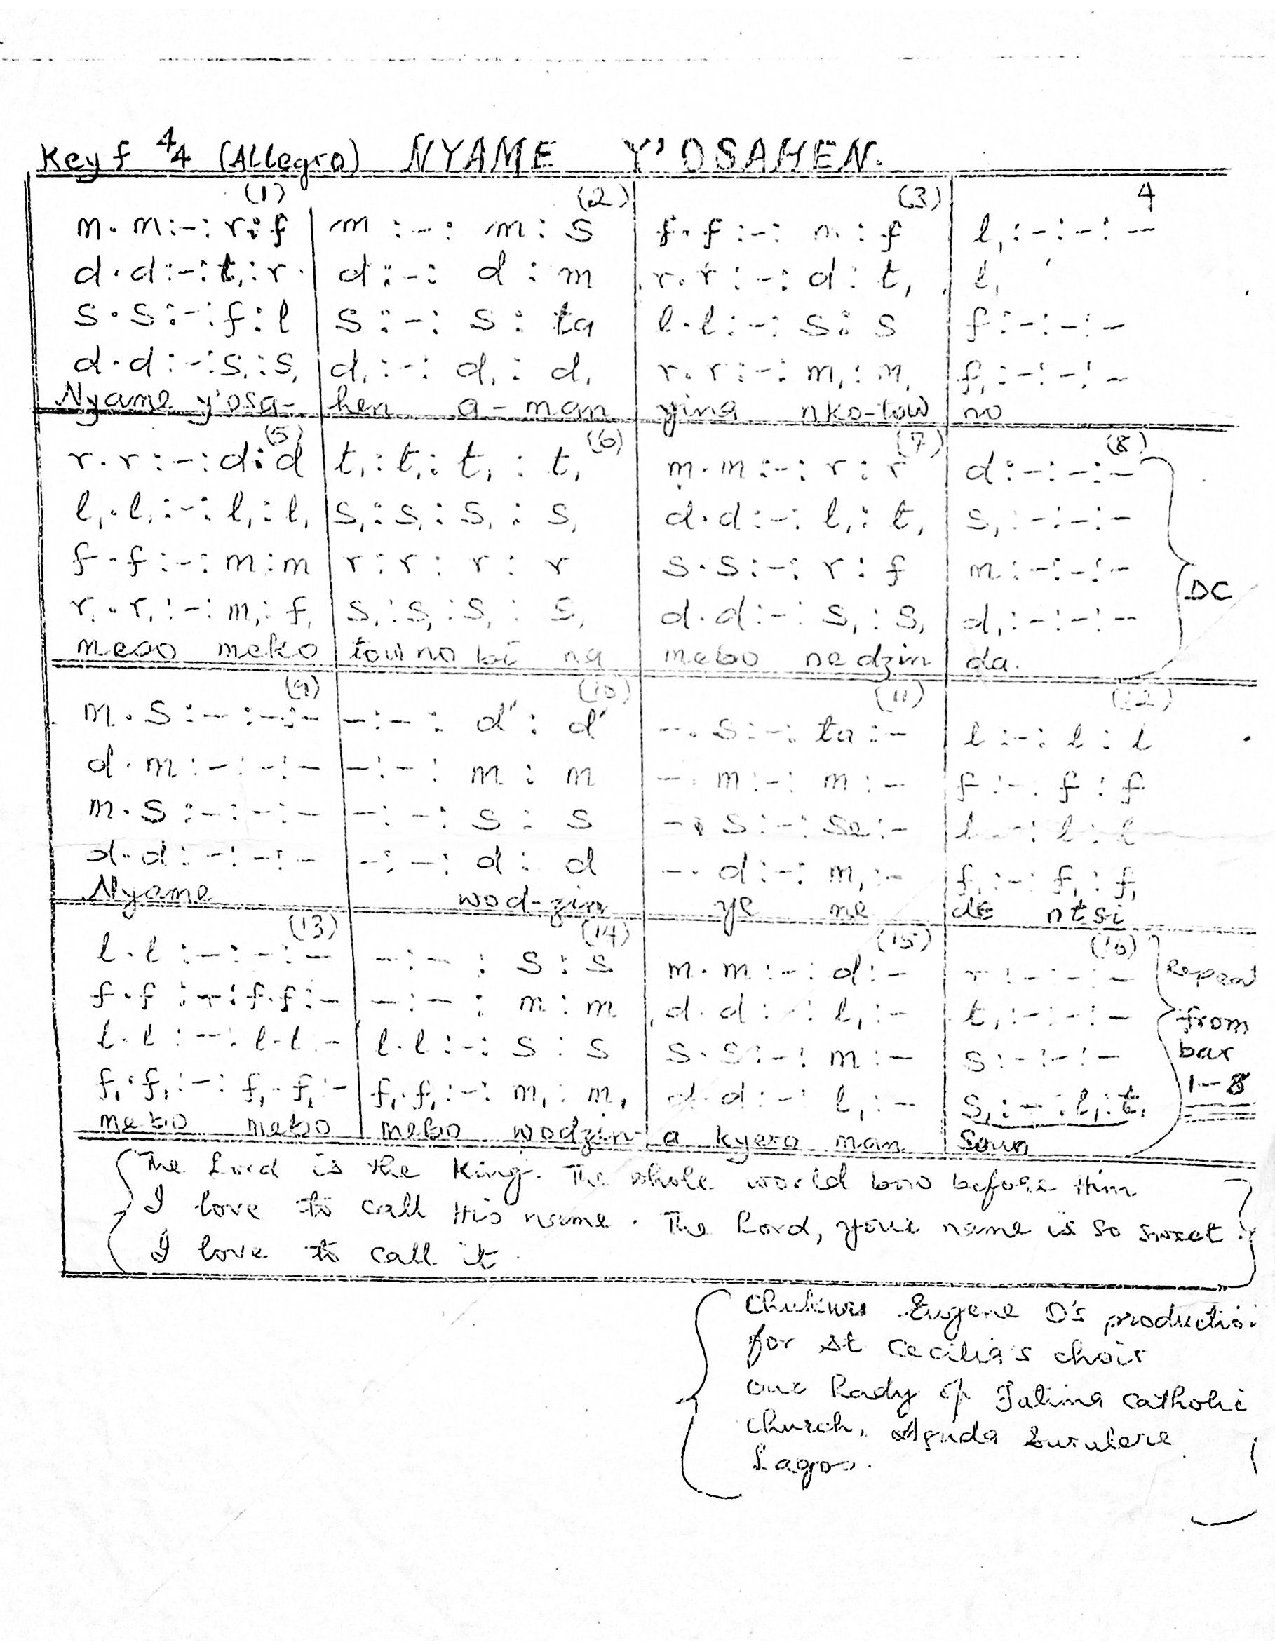 Key f 4/4 (Allegro) NYAME Y'OSAHEN.
(1) (2) (3) 4
m.m:-:r:f | m:-:m:s | f.f:-:m:f | l,:-:-:-
d.d:-:t,:r. | d:-:d:m | r.r:-:d:t, | l,
s.s:-:f:l | s:-:s:ta | l.l:-:s:s | f:-:-:-
d.d:-:s,:s, | d,:-:d,:d, | r.r:-:m,:m, | f,:-:-:-
Nyame y'osa- hen a-man ying nko-tow no
(5) (6) (7) (8)
r.r:-:d:d | t,:t,:t,:t, | m.m:-:r:r | d:-:-:-
l,.l,:-:l,:l, | s,:s,:s,:s, | d.d:-:l,:t, | s,:-:-:-
f.f:-:m:m | r:r:r:r | s.s:-:r:f | m:-:-:-
DC
r,.r,:-:m,:f, | s,:s,:s,:s, | d.d:-:s,:s, | d,:-:-:-
mebo meko tow no bi na mebo ne dzin da.
(9) (10) (11) (12)
m.s:-:-:- | -:-:d':d' | -.s:-:ta:- | l:-:l:l
d.m:-:-:- | -:-:m:m | -.m:-:m:- | f:-:f:f
m.s:-:-:- | -:-:s:s | -.s:-:se:- | l:-:l:l
d.d:-:-:- | -:-:d:d | -.d:-:m,:- | f,:-:f,:f,
Nyame wod-zin ye me dɛ ntsi
(13) (14) (15) (16)
l.l:-:-:- | -:-:s:s | m.m:-:d:- | r:-:-:-
f.f:-:f.f:- | -:-:m:m | d.d:-:l,:- | t,:-:-:-
l.l:-:l.l:- | l.l:-:s:s | s.s:-:m:- | s:-:-:-
f,.f,:-:f,.f,:- | f,.f,:-:m,:m, | d.d:-:l,:- | s,:-:l,:t,
Repeat
from
bar
1-8
mebo mebo mebo wodzin a kyero man Sown
The Lord is the King. The whole world bow before Him
I love to call His name. The Lord, your name is so sweet
I love to call it
Chukwu Eugene O's production
for St Cecilia's choir
our Lady of Fatima catholic
church, Aguda Surulere
Lagos.